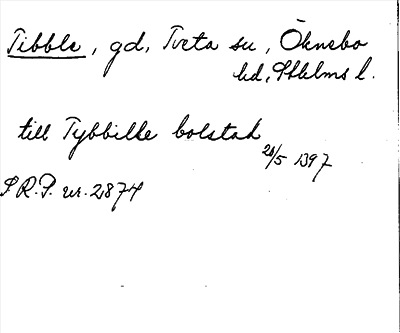 Tibble, gd, Tveta sn, Öknebo
hd, Sthlms l.
till Tybbilke bolstadh
28/5 1397
S.R.P. nr. 2874